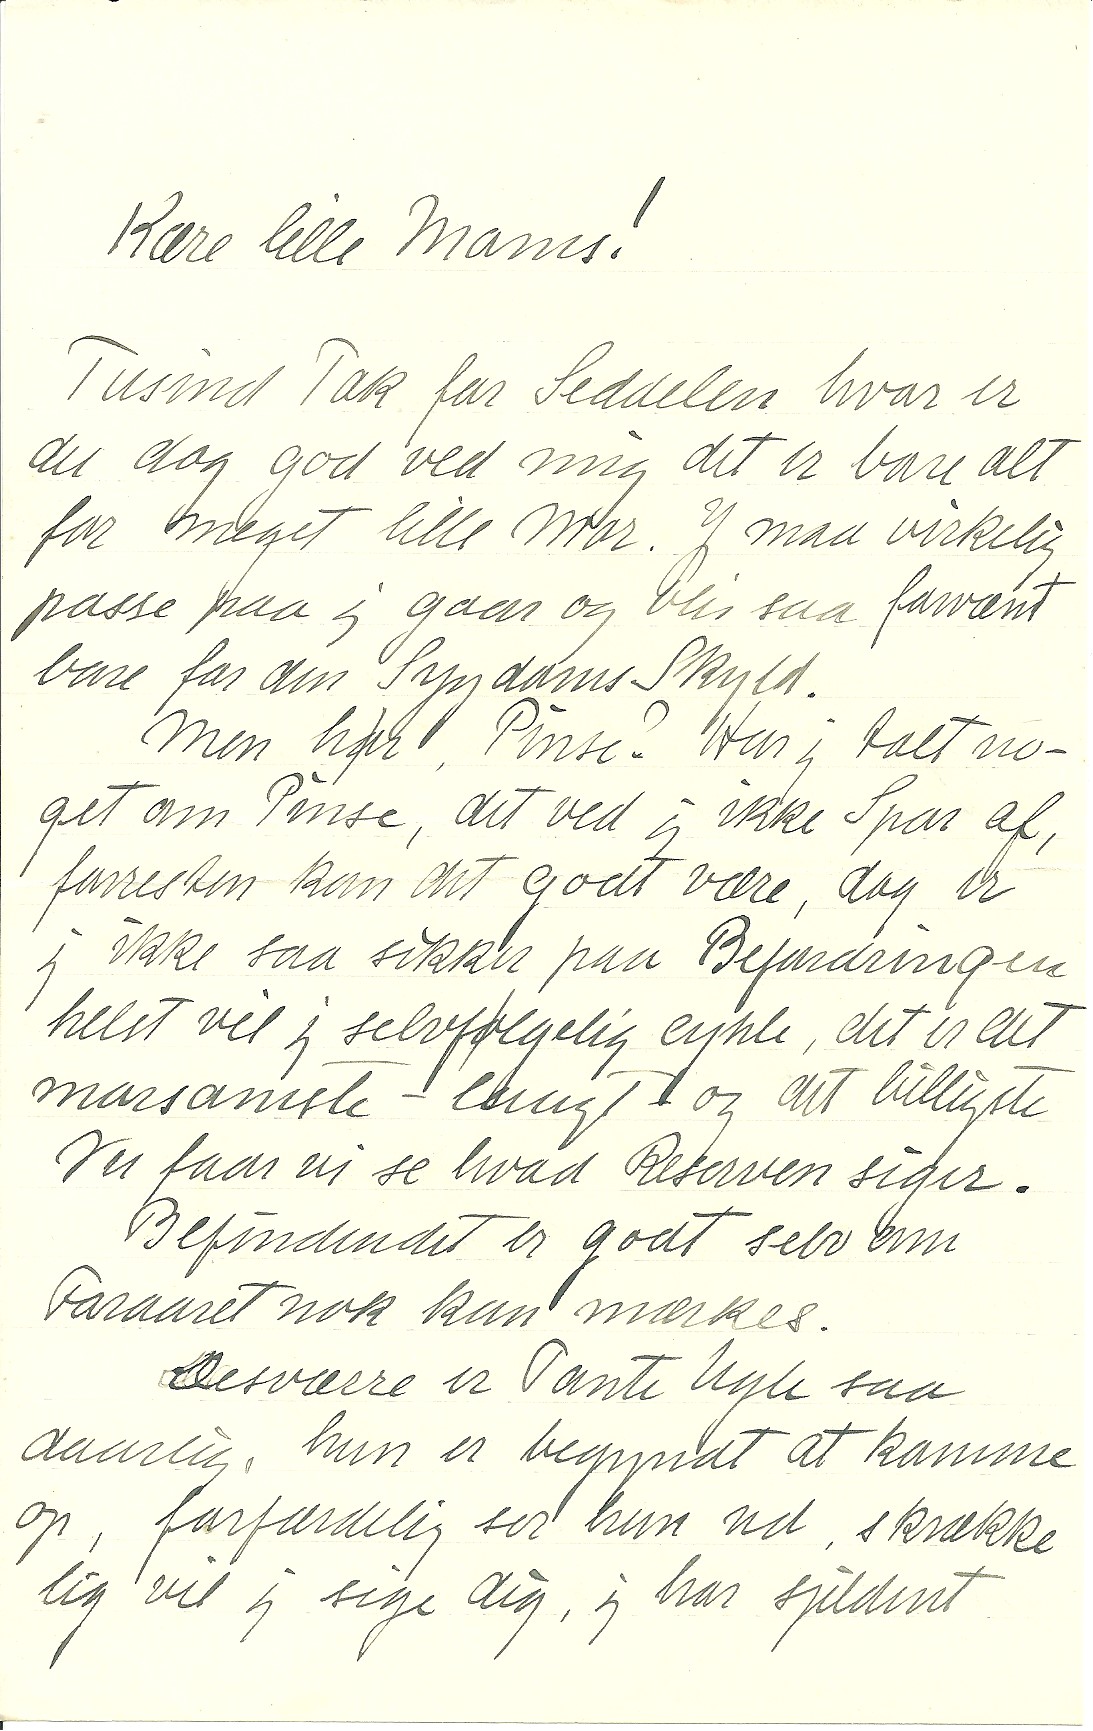 Kære lille Mams!
Tusind Tak for Seddelen hvor er
du dog god ved mig det er bare alt
for meget lille Mor. I maa virkelig
passe paa j gaar og blir saa forvænt
bare for den Sygdoms Skyld.
Men hør, Pinse? Har j talt no-
get om Pinse, det ved j ikke Spor af,
forresten kan det godt være, dog er
j ikke saa sikker paa Befordringen
helst vil j selvfølgelig cykle, det er det
morsomste - langt - og det billigste
Nu faar vi se hvad Reserven siger.
Befindendet er godt selv om
Foraaret nok kan mærkes.
Desværre er Tante Ugle saa
daarlig, hun er begyndt at komme
op, forfærdelig ser hun ud, skrække
lig vil j sige dig, j har sjældent